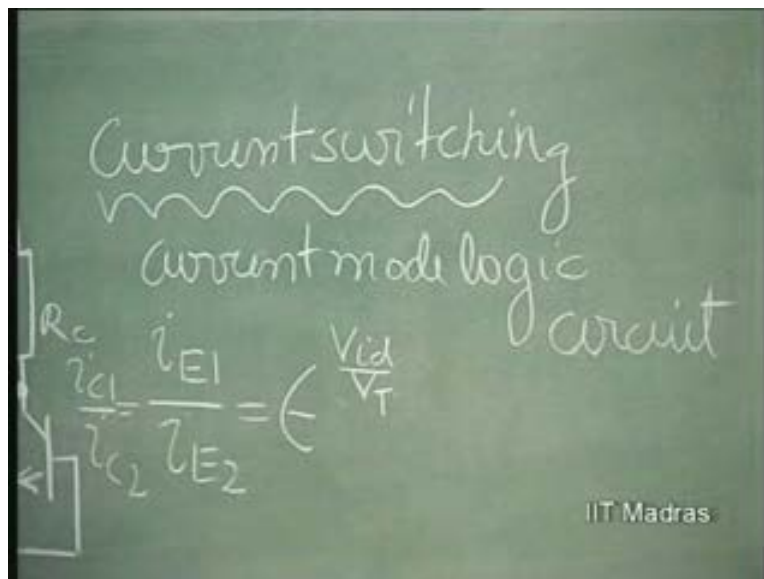 Current switching
current mode logic
circuit
Rc
iC1/iC2 = iE1/iE2 = ϵ^(Vid/VT)
IIT Madras